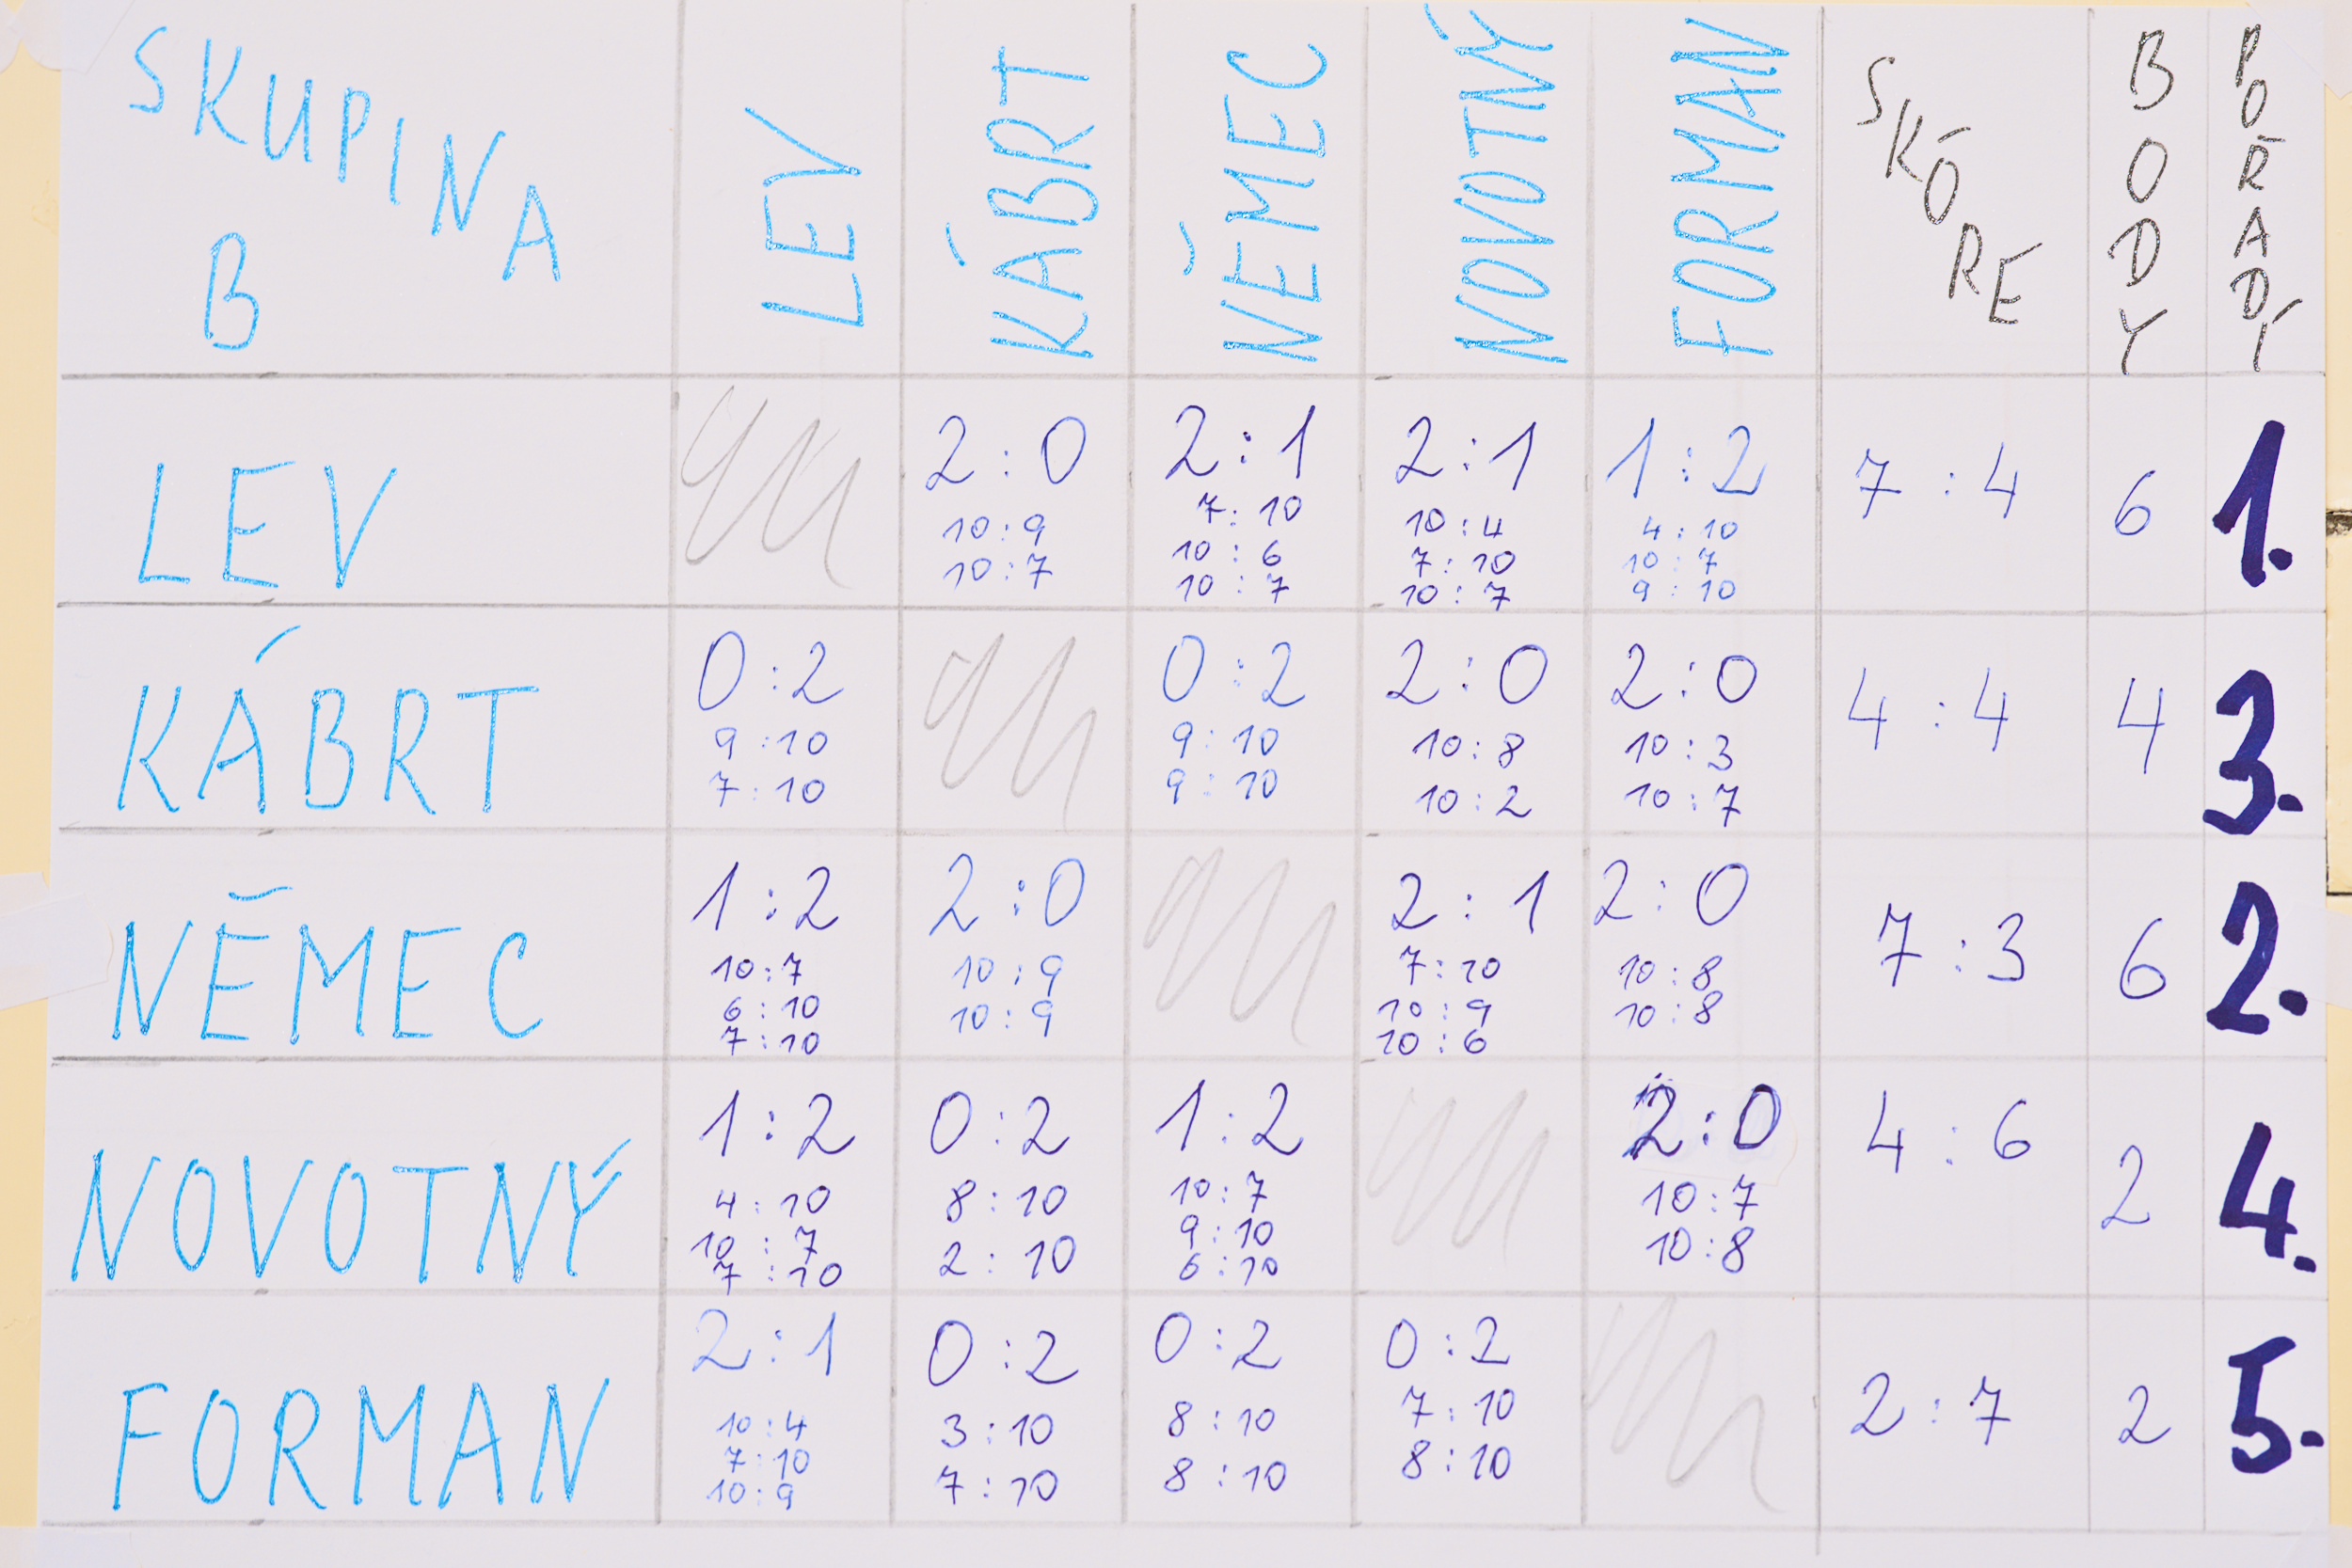 SKUPINA B LEV KÁBRT NĚMEC NOVOTNÝ FORMAN SKÓRE BODY POŘADÍ
LEV 2:0 2:1 2:1 1:2 7:4 6 1.
10:9 7:10 10:4 4:10
10:7 10:6 7:10 10:7
10:7 10:7 9:10
KÁBRT 0:2 0:2 2:0 2:0 4:4 4 3.
9:10 9:10 10:8 10:3
7:10 9:10 10:2 10:7
NĚMEC 1:2 2:0 2:1 2:0 7:3 6 2.
10:7 10:9 7:10 10:8
6:10 10:9 10:9 10:8
7:10 10:6
NOVOTNÝ 1:2 0:2 1:2 2:0 4:6 2 4.
4:10 8:10 10:7 10:7
10:7 2:10 9:10 10:8
7:10 6:10
FORMAN 2:1 0:2 0:2 0:2 2:7 2 5.
10:4 3:10 8:10 7:10
7:10 7:10 8:10 8:10
10:9